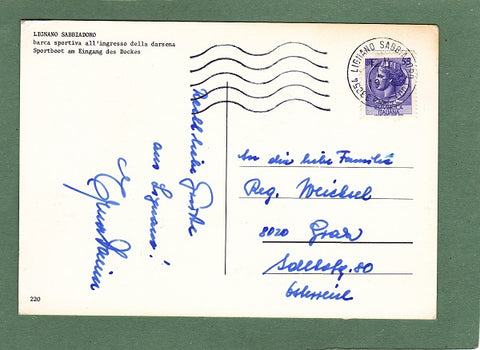 LIGNANO SABBIADORO
barca sportiva all'ingresso della darsena
Sportboot am Eingang des Dockes
LIGNANO SABBIADORO
Recht liebe Grüße
aus Lignano!
An die liebe Familie
Reg. Weichsel
8020 Graz
80
Österreich
220